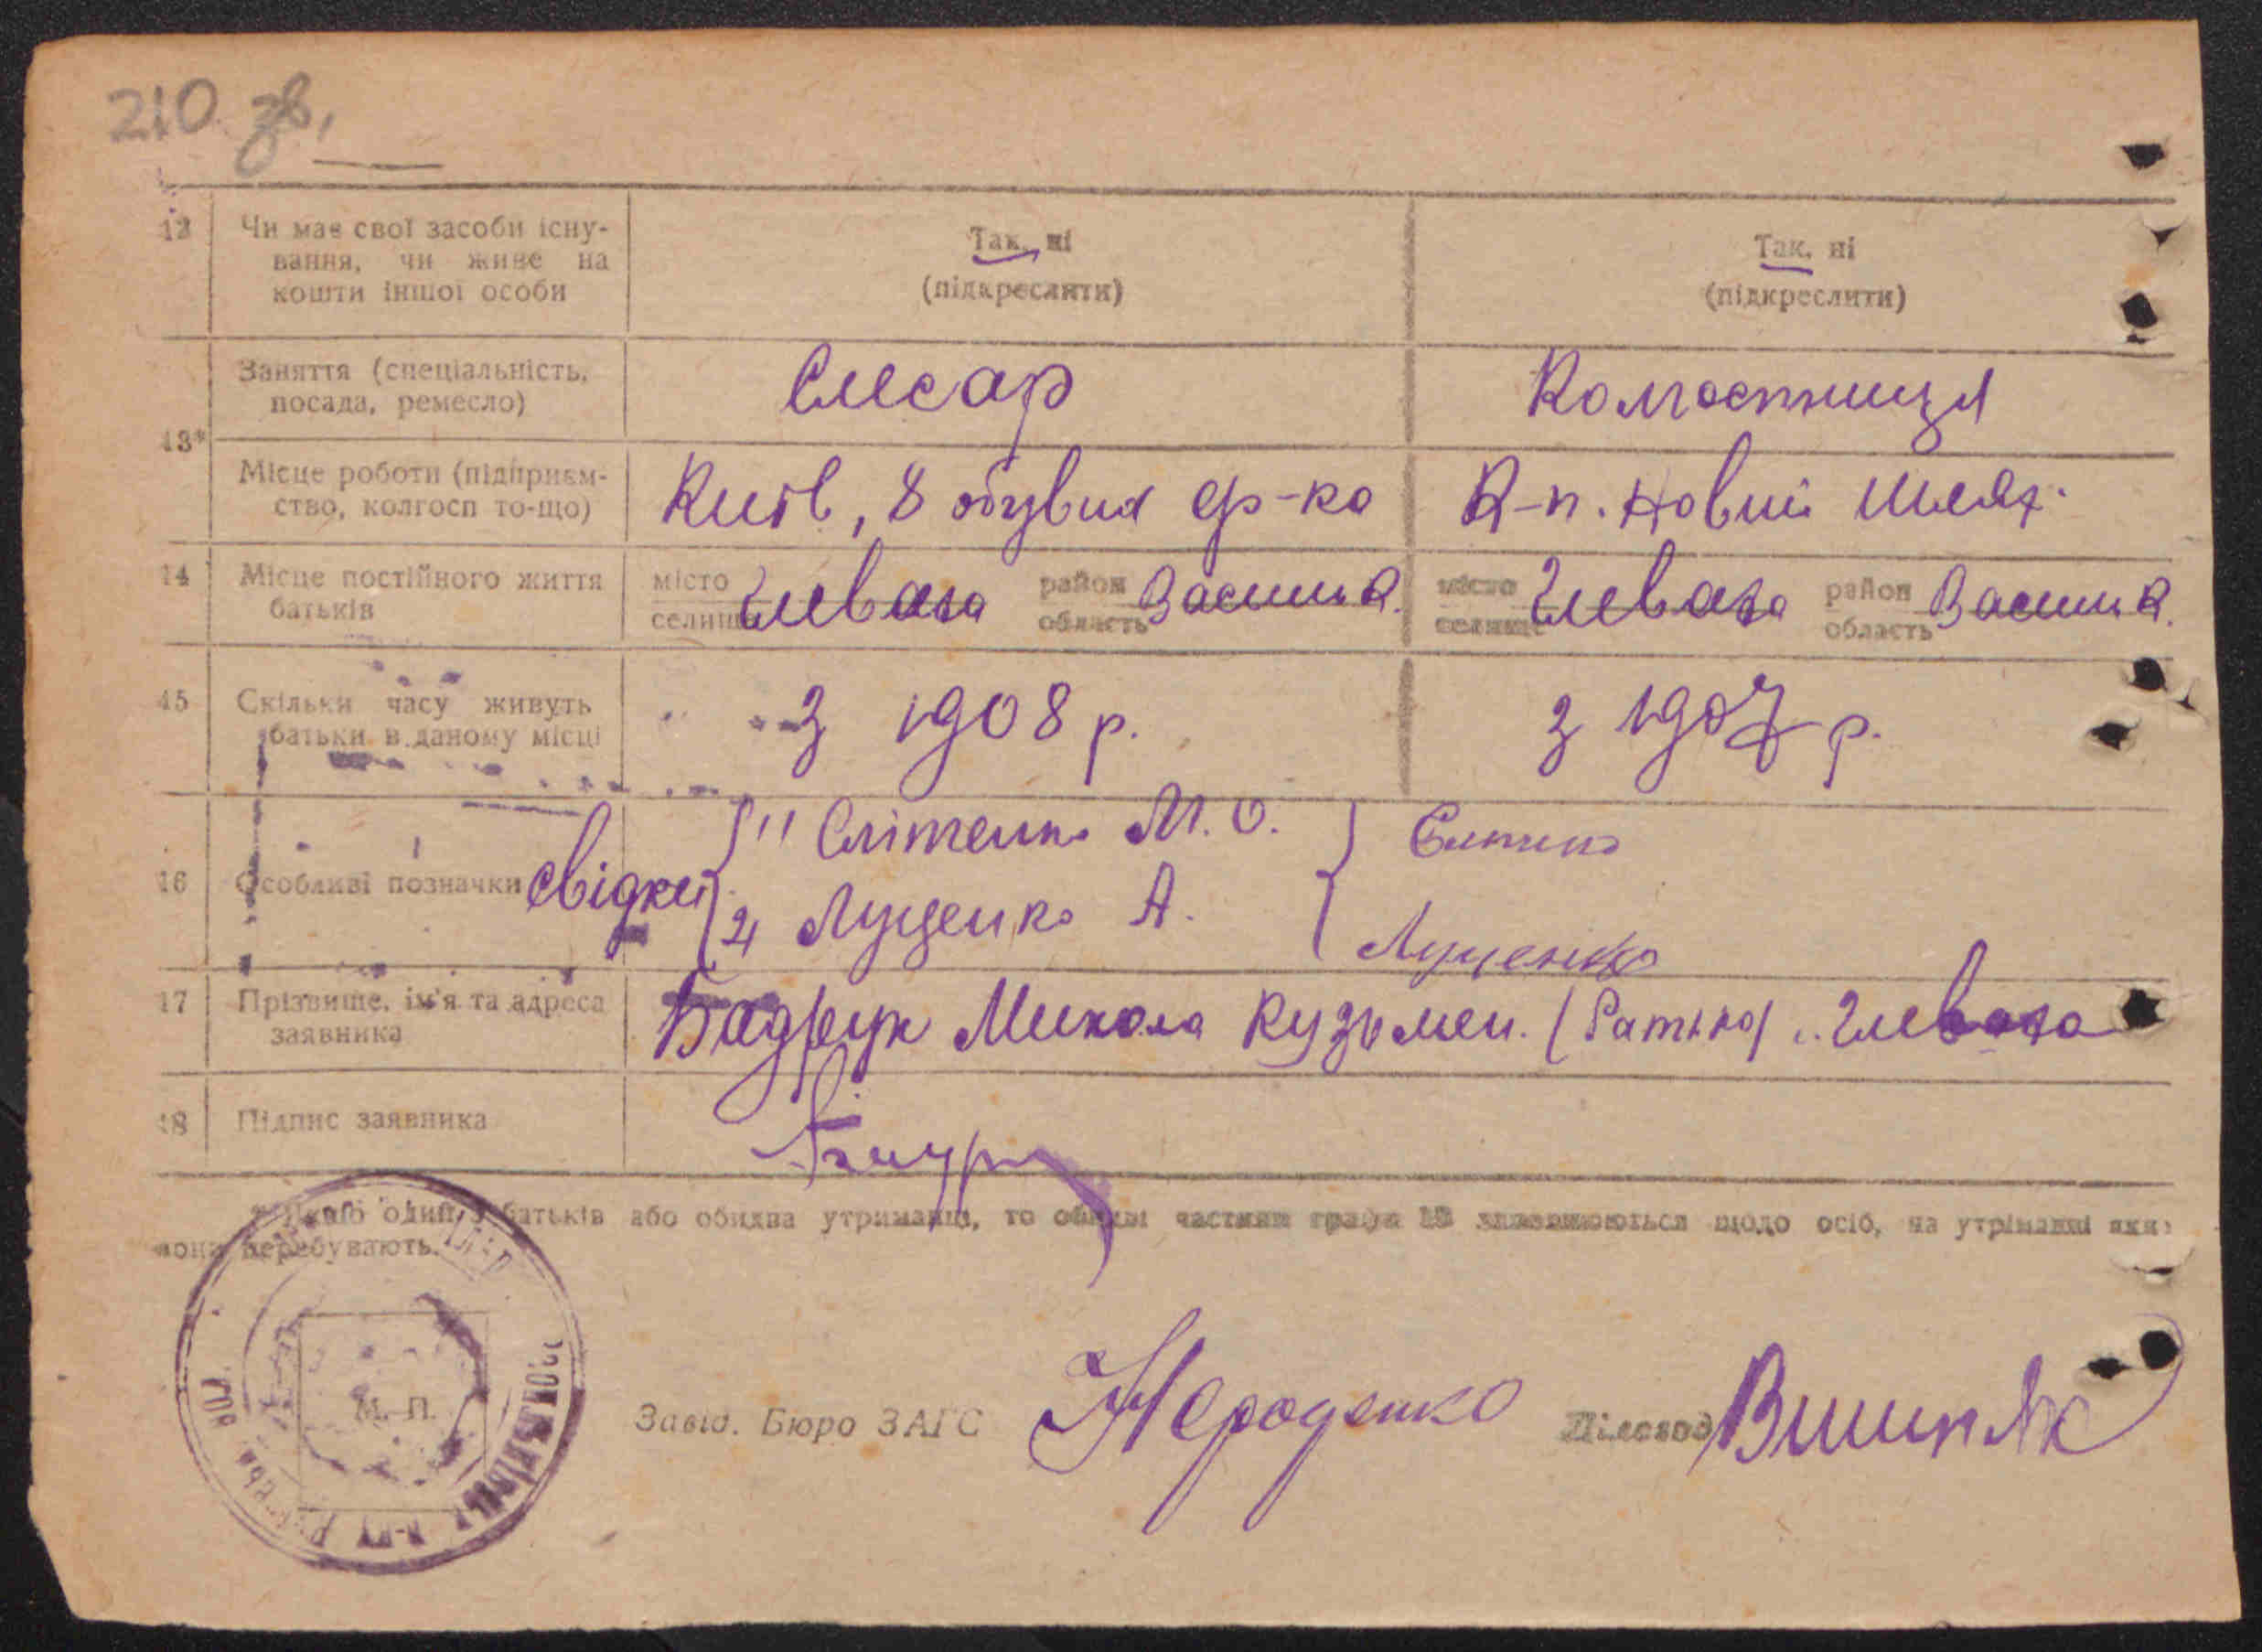 210 зв.
12 Чи має свої засоби існу-
вання, чи живе на
кошти іншої особи
Так, ні
(підкреслити)
Так, ні
(підкреслити)
13*
Заняття (спеціальність,
посада, ремесло)
Слесар
Колгостниця
Місце роботи (підприєм-
ство, колгосп то-що)
Київ, 8 обувна ф-ка
К-п. Новий шлях.
14 Місце постійного життя
батьків
місто
селище
Глеваха
район
область
Васильк.
місто
селище
Глеваха
район
область
Васильк.
15 Скільки часу живуть
батьки в даному місці
з 1908 р.
з 1907 р.
16 Особливі позначки
свідки
1) Слітенко М. О.
2) Луценко А.
Луценко
17 Прізвище, ім'я та адреса
заявника
Микола Кузьмич. (Батько) с. Глеваха
18 Підпис заявника
* Якщо один з батьків або обидва утриманці, то обидві частини графи 13 заповнюються щодо осіб, на утриманні яких
вони перебувають.
М. П.
Завід. Бюро ЗАГС
Нероденко
Діловод
Вишняк